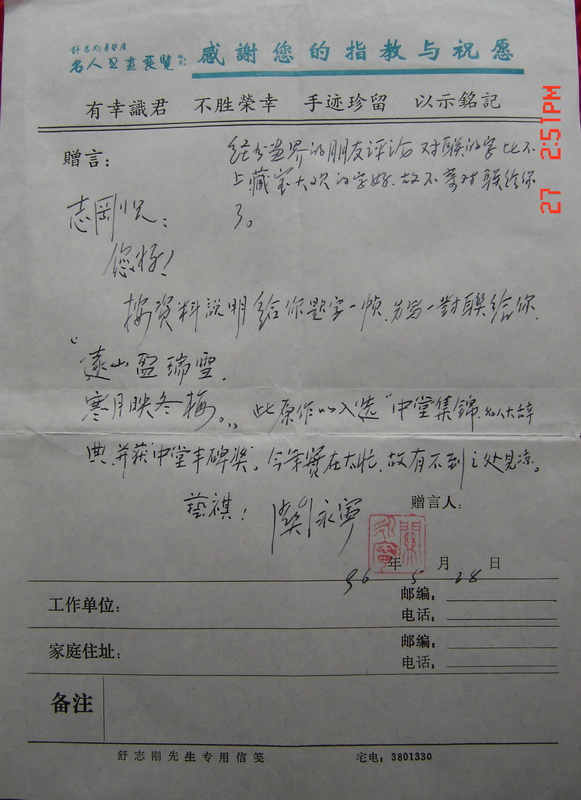 舒志刚
名人
感謝您的指教与祝愿
有幸識君 不胜榮幸 手迹珍留 以示銘記
27 2:51PM
赠言：
的朋友评论 对联的字比不
上藏 的字好，故不寄对联给你
了。
志剛兄：
您好！
按資料說明给你題字一幀，另写一對联给你，
“遠山盈瑞雪，
寒月映冬梅。” 此原作以入选“中堂集錦 名人大辞
典”并获“中堂丰碑奖”。今年實在太忙，故有不到之处見凉。
藝祺！
永寧
赠言人：
96年5月28日
工作单位：
邮编，
电话，
家庭住址：
邮编，
电话，
备注
舒志刚先生专用信笺 宅电：3801330